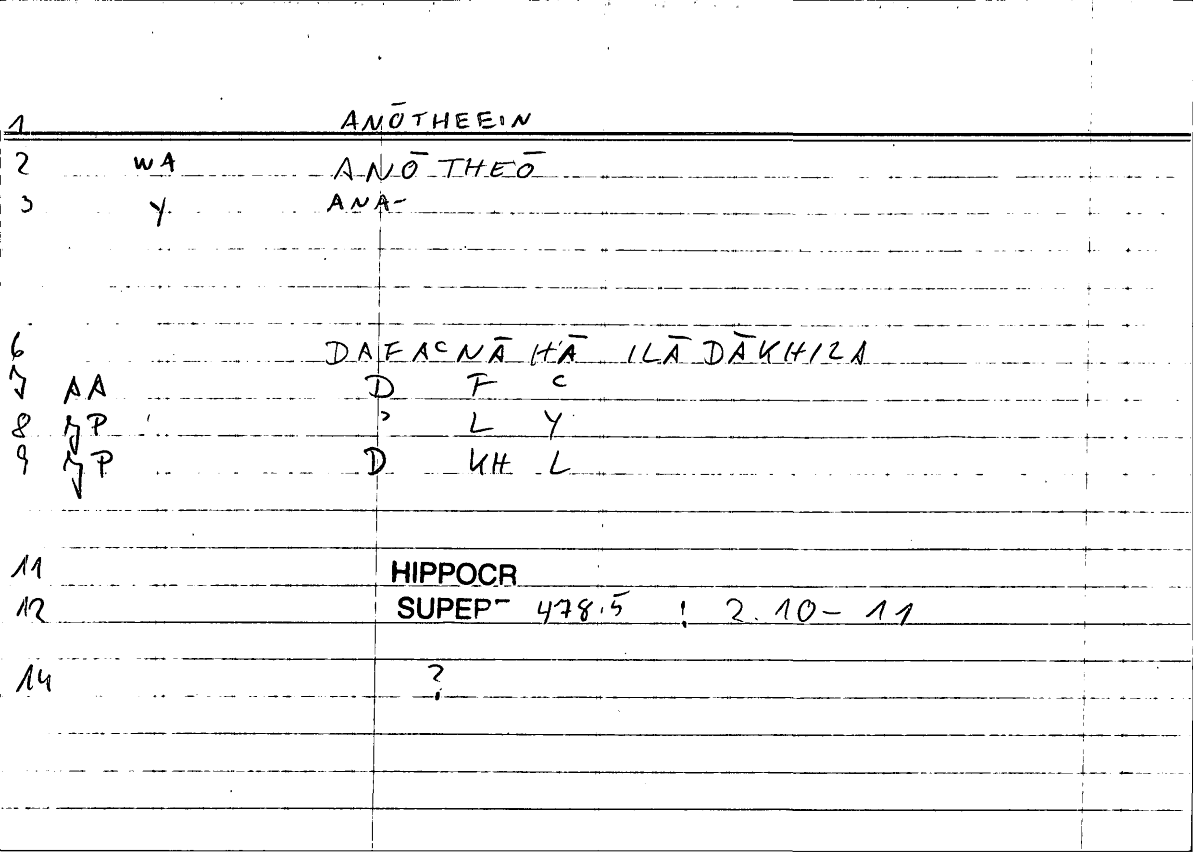 1 ANŌTHEEIN
2 WA ANŌTHEŌ
3 Y ANA-
6 DAFAᶜNĀHĀ ILĀ DĀKHILA
7 AA D F ᶜ
8 P ʾ L Y
9 P D KH L
11 HIPPOCR
12 SUPERF 478.5 ; 2.10-11
14 ?